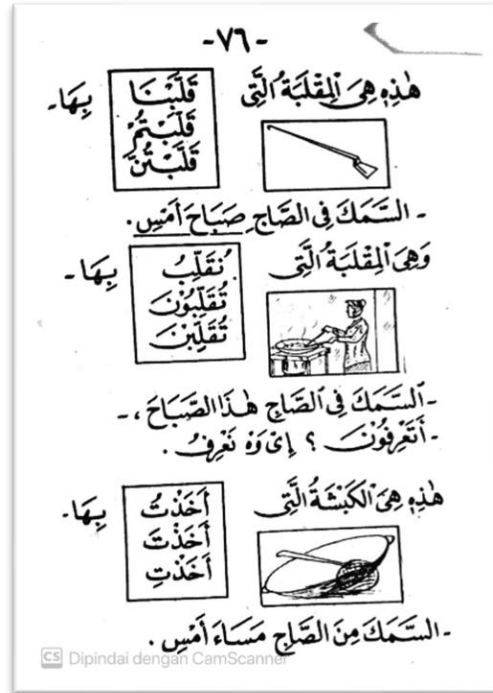 -٧٦-
هٰذِهِ هِيَ الْمِقْلَبَةُ الَّتِي
قَلَّبْنَا
قَلَّبْتُمْ
قَلَّبْتُنَّ
بِهَا-
- السَّمَكَ فِي الصَّاجِ صَبَاحَ أَمْسِ.
وَهِيَ الْمِقْلَبَةُ الَّتِي
نُقَلِّبُ
تُقَلِّبُوْنَ
تُقَلِّبْنَ
بِهَا-
- السَّمَكَ فِي الصَّاجِ هٰذَا الصَّبَاحَ، -
- أَتَعْرِفُوْنَ ؟ إِيْ وَهْ نَعْرِفُ.
هٰذِهِ هِيَ الْكَبْشَةُ الَّتِي
أَخَذْتُ
أَخَذْتَ
أَخَذْتِ
بِهَا-
- السَّمَكَ مِنَ الصَّاجِ مَسَاءَ أَمْسِ.
CS Dipindai dengan CamScanner